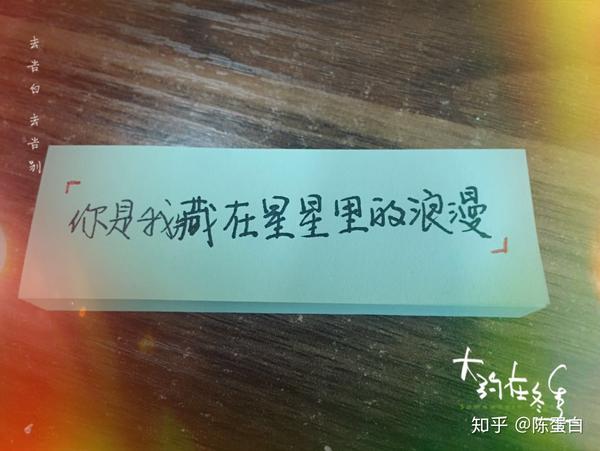 去告白 去告别
「你是我藏在星星里的浪漫」
大约在冬季
知乎 @陈蛋白